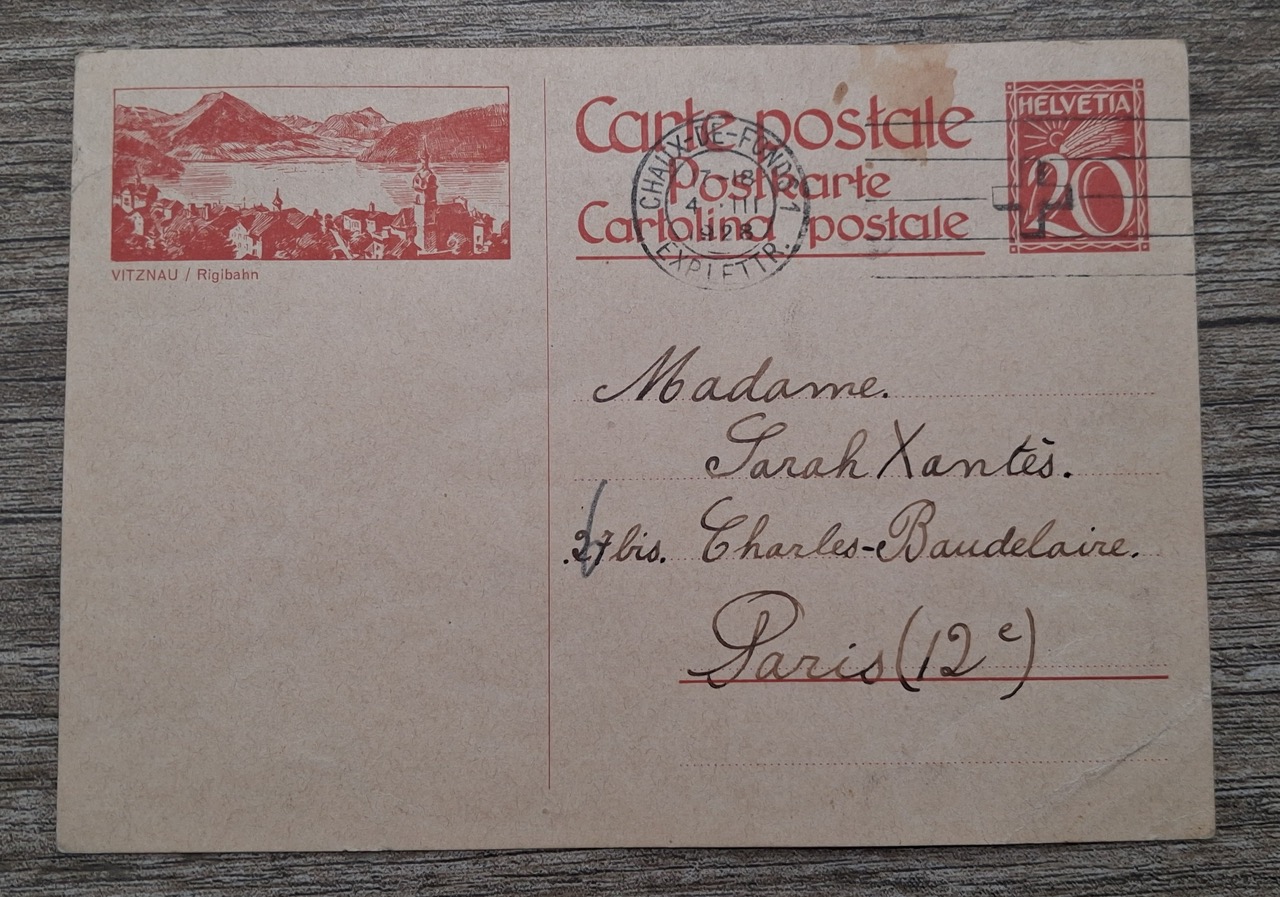 VITZNAU / Rigibahn
Carte postale
Postkarte
Cartolina postale
HELVETIA
20
CHAUX-DE-FONDS 1
17-18
4. III
1928
EXP. LETTR.
Madame.
Sarah Xantès.
27 bis. Charles-Baudelaire.
Paris (12e)